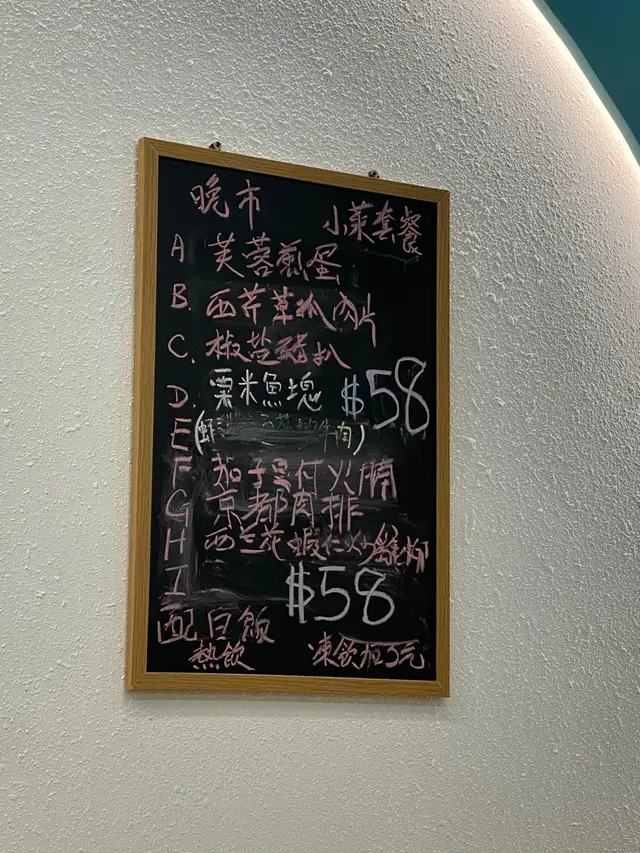 晚市 小菜套餐
A 芙蓉煎蛋
B. 西芹草菰肉片
C. 椒盐豬扒
D. 粟米魚塊 $58
E (蝦 牛肉)
F 茄子豆付火腩
G 京都肉排
H 西兰花蝦仁炒雞柳
I $58
配白飯
熱飲 凍飲加3元